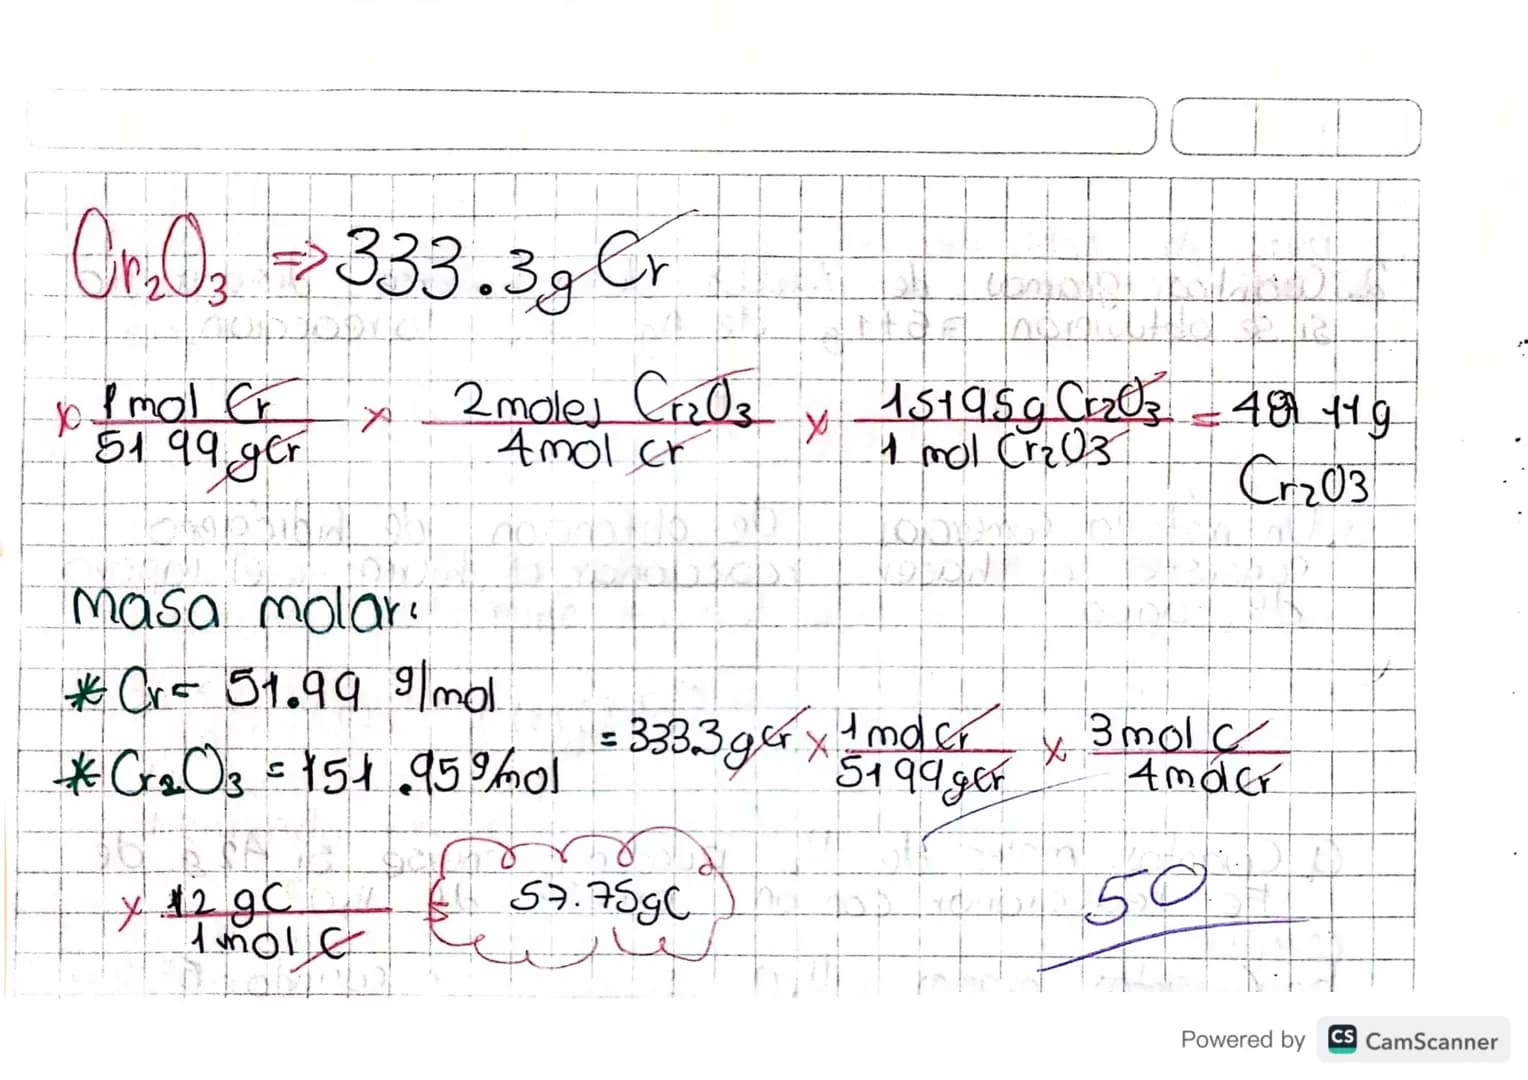 Cr2O3 => 333.3g Cr
x 1 mol Cr / 51 99 gCr x 2moles Cr2O3 / 4mol cr x 15195g Cr2O3 / 1 mol Cr2O3 = 11g
Cr2O3
masa molar:
* Cr= 51.99 g/mol
* Cr2O3 = 151.95g/mol
= 333.3gCr x 1mol Cr / 5199gCr x 3mol C / 4mol Cr
x 12 gC / 1mol C 57.75gC
50
Powered by CS CamScanner